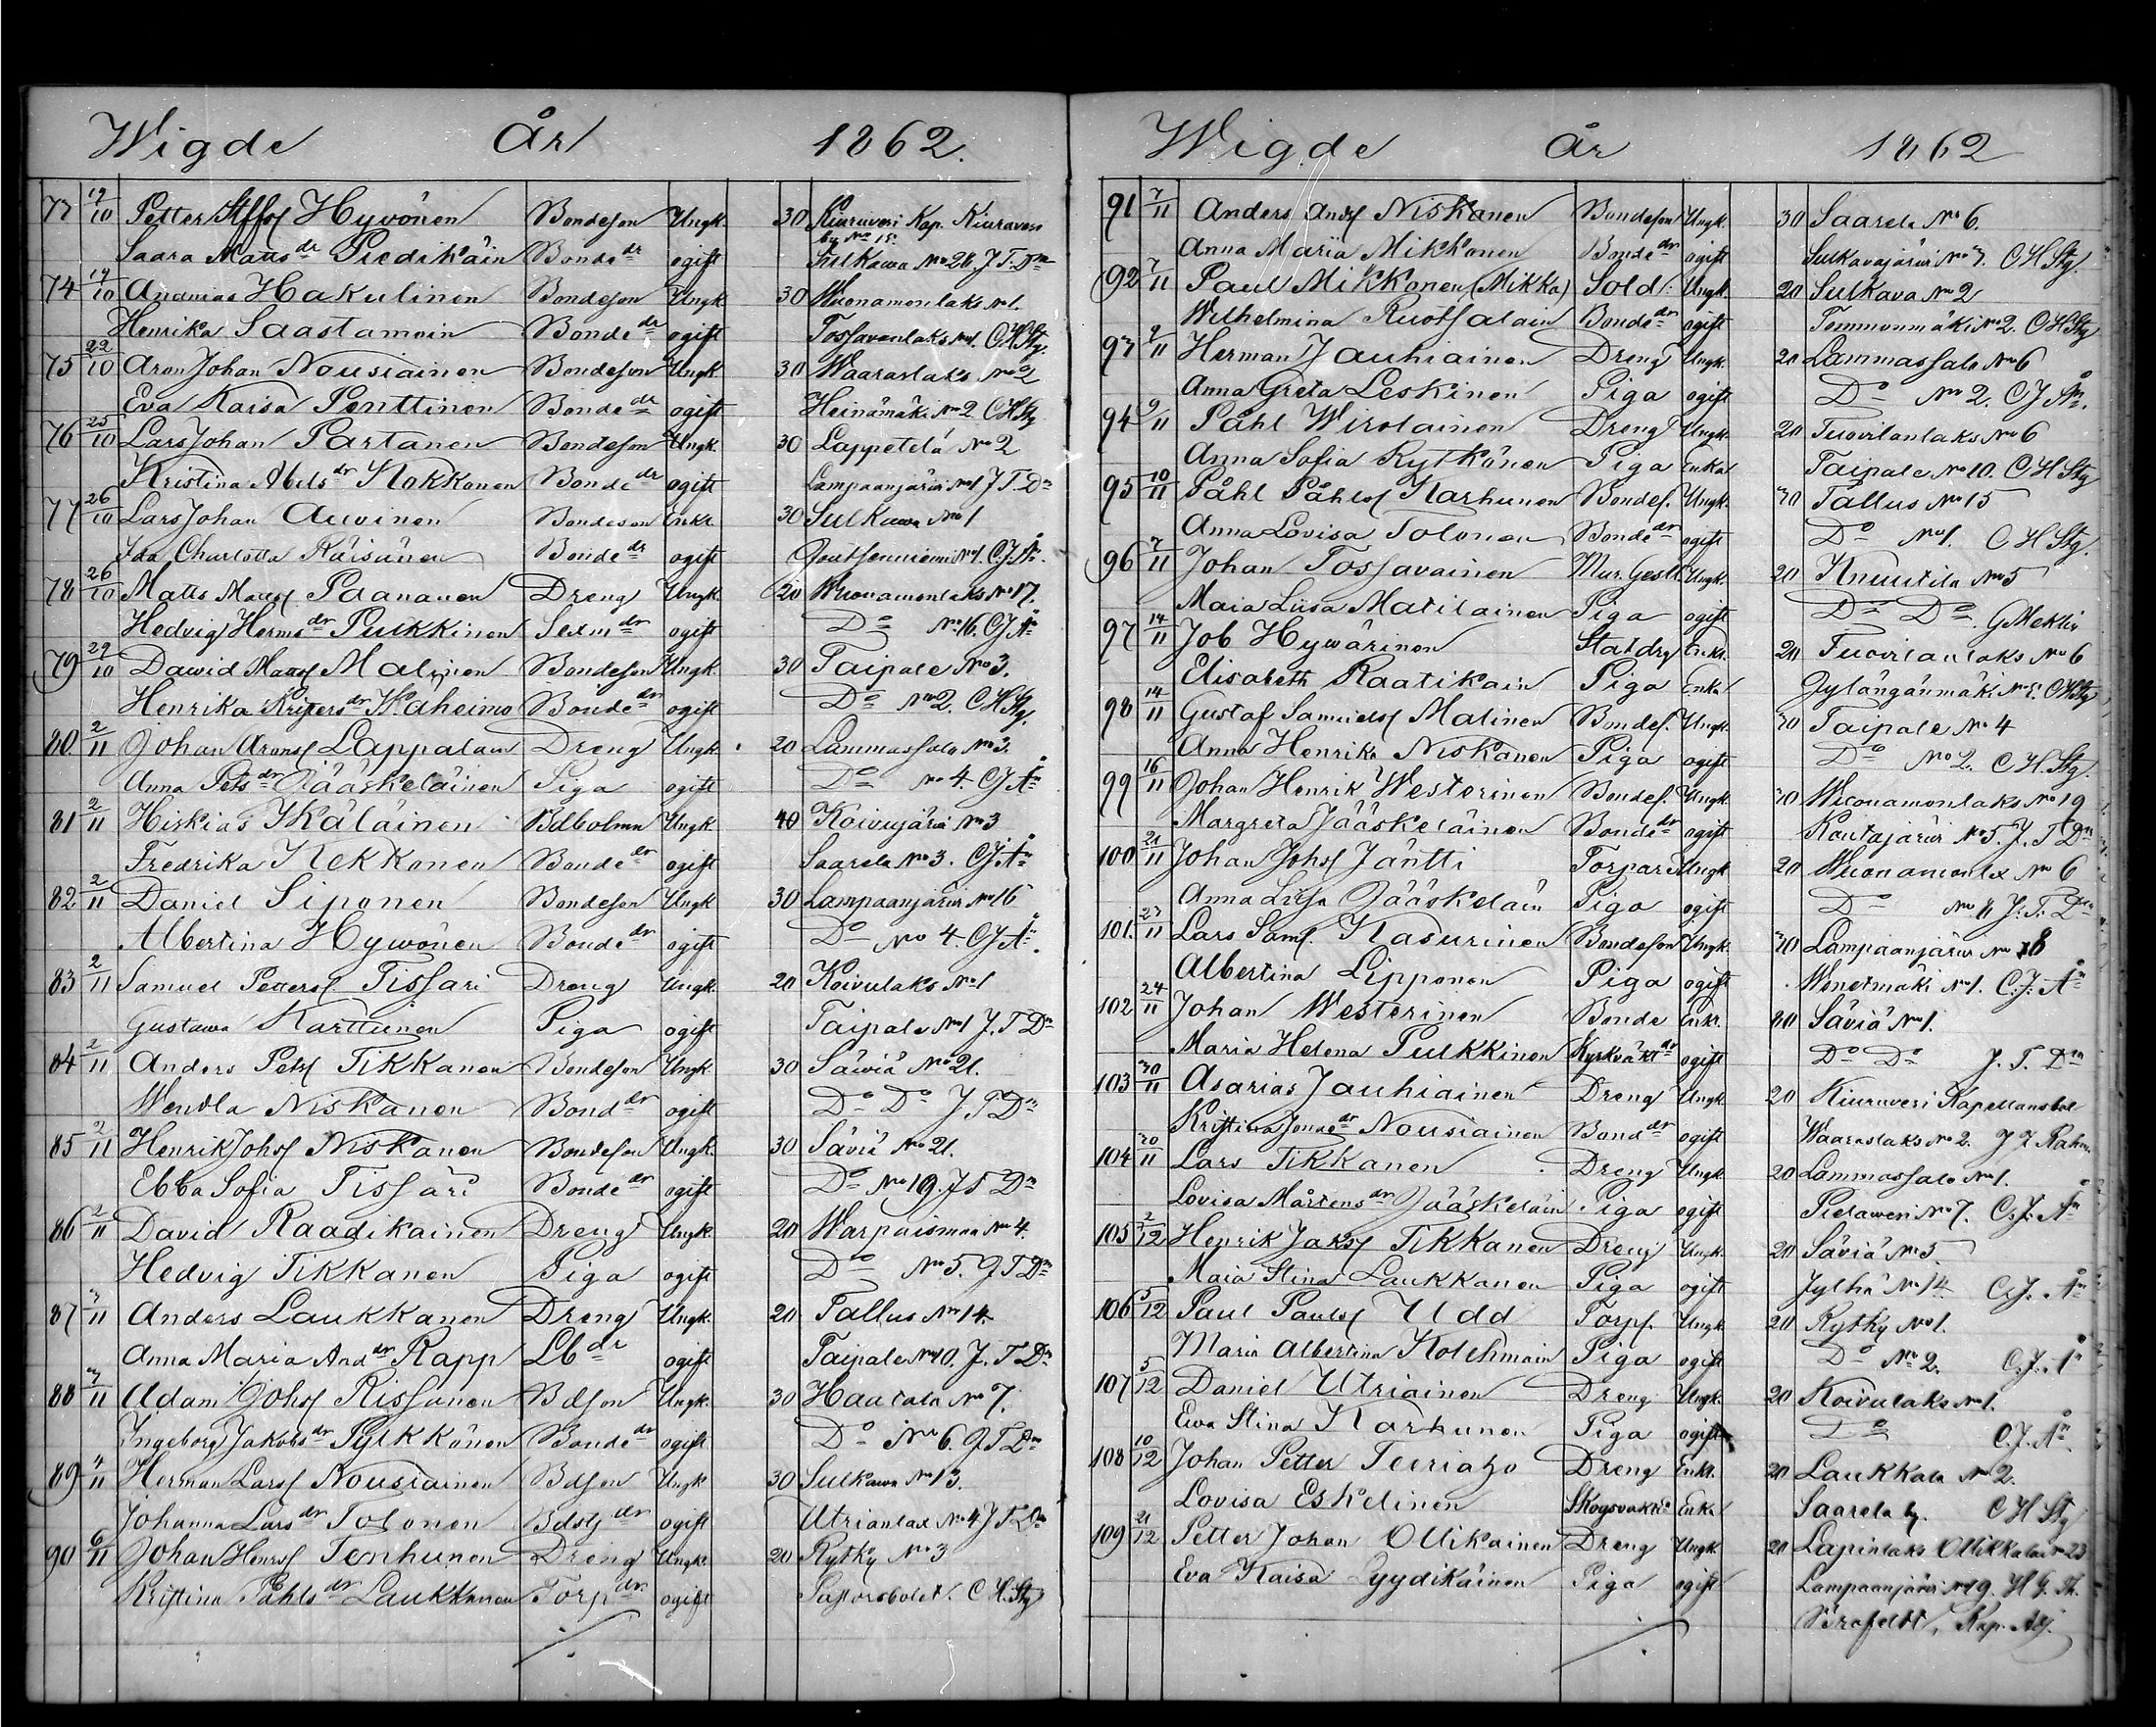 Wigde År 1862.
77 19/10 Petter Stffsſ Hyvönen Bondeson Ungk. 30 Kiuruvesi Kap. Kiuruvesi
by No 15.
Saara Mattsdr Piedikäin Bondedr ogift Sulkawa No 28. J. T. Dm
74 19/10 Ananias Hakulinen Bondeson Ungk. 30 Wuonamonlaks No 1.
Henrika Saastamoin Bondedr ogift Tossavanlaks No 1. C H Stg.
75 22/10 Aron Johan Nousiainen Bondeson Ungk. 30 Waaraslaks No 2
Eva Kaisa Penttinen Bondedr ogift Heinämäki No 2 C H Stg
76 25/10 Lars Johan Partanen Bondeson Ungk. 30 Lappetelä No 2
Kristina Abelsdr Kokkonen Bondedr ogift Lampaanjärvi No 1 J T Dn
77 26/10 Lars Johan Auvinen Bondeson Enkl. 30 Sulkawa No 1
Ida Charlotta Räisänen Bondedr ogift Joutsenniemi No 1. C. J. Ån.
78 26/10 Matts Mattsſ Paananen Dreng Ungk. 20 Wuonamonlaks No 17.
Hedvig Hermsdr Pulkkinen Sexmdr ogift Do No 16. C J Ån
79 29/10 Dawid Mattsſ Malinen Bondeson Ungk. 30 Taipale No 3.
Henrika Kristersdr Waheimo Bondedr ogift Do No 2. C H Stg.
80 2/11 Johan Aronsſ Lappalain Dreng Ungk. 20 Lammassalo No 3.
Anna Petsdr Jääskeläinen Piga ogift Do No 4. C J Ån
81 2/11 Hiskias Ikäläinen Bdbolmn Ungk 40 Koivujärvi No 3
Fredrika Kekkonen Bondedr ogift Saarela No 3. C J Ån
82 2/11 Daniel Siponen Bondeson Ungk 30 Lampaanjärvi No 16
Albertina Hyvönen Bondedr ogift Do No 4. C J Ån.
83 2/11 Samuel Pettersſ Tissari Dreng Ungk. 20 Koivulaks No 1
Gustawa Karttunen Piga ogift Taipale No 1 J. T Dn
84 2/11 Anders Petsſ Tikkanen Bondeson Ungk. 30 Säwiä No 21.
Wendla Niskanen Bonddr ogift Do Do J T Dn
85 2/11 Henrik Johsſ Niskanen Bondeson Ungk. 30 Säviä No 21.
Ebba Sofia Tissari Bondedr ogift Do No 19. J T Dn
86 2/11 David Raadikainen Dreng Ungk. 20 Warpaismaa No 4.
Hedvig Tikkanen Piga ogift Do No 5. J T Dn
87 3/11 Anders Laukkanen Dreng Ungk. 20 Tallus No 14.
Anna Maria Anddr Rapp Lbdr ogift Taipale No 10. J. T Dn
88 3/11 Adam Johsſ Rissanen Bdson Ungk. 30 Haatala No 7.
Ingeborg Jakobsdr Pylkkönen Bondedr ogift Do No 6. J T Dn
89 4/11 Herman Larsſ Nousiainen Bdson Ungk 30 Sulkawa No 13.
Johanna Larsdr Tolonen ogift Utrianlax No 4 J T Dn
90 6/11 Johan Henrsſ Tenhunen Dreng Ungk. 20 Rytky No 3
Kristina Påhlsdr Laukkanen Torpdr ogift Pastorsbolet. C H. Stg
Wigde År 1862
91 7/11 Anders Andsſ Niskanen Bondeson Ungk. 30 Saarela No 6.
Anna Maria Mikkonen Bondedr ogift Sulkavajärvi No 7. C H Stg.
92 7/11 Paul Mikkonen (Mikka) Sold. Ungk. 20 Sulkava No 2
Wilhelmina Ruotsalain Bondedr ogift Tommonmäki No 2. C H Stg
93 9/11 Herman Jauhiainen Dreng Ungk. 20 Lammassalo No 6
Anna Greta Leskinen Piga ogift Do No 2. C J Ån.
94 9/11 Påhl Wirolainen Dreng Ungk. 20 Tuovilanlaks No 6
Anna Sofia Rytkönen Piga Enka Taipale No 10. C H Stg
95 10/11 Påhl Påhlsſ Karhunen Bondes. Ungk. 30 Tallus No 15
Anna Lovisa Tolonen Bondedr ogift Do No 1. C H Stg.
96 7/11 Johan Tossavainen Mur. Gesll Ungk. 20 Knuutila No 5
Maia Liisa Matilainen Piga ogift Do Do. G Meklin
97 14/11 Job Hywärinen Statdrg Enkl. 20 Tuovilanlaks No 6
Elisabeth Raatikain Piga Enka Jylängänmäki No 5. C H Stg
98 14/11 Gustaf Samuelsſ Malinen Bondes. Ungk. 30 Taipale No 4
Anna Henrika Niskanen Piga ogift Do No 2. C H. Stg.
99 16/11 Johan Henrik Westerinen Bondes. Ungk. 30 Wuonamonlaks No 19
Margreta Jääskeläinen Bondedr ogift Koutajärvi No 5. J. T Dn
100 21/11 Johan Johsſ Jäntti Torpare Ungk. 20 Wuonamonlx No 6
Anna Liisa Jääskeläin Piga ogift Do No 11 J. T. Dn
101. 23/11 Lars Samſ. Kasurinen Bondeson Ungk. 30 Lampaanjärvi No 8
Albertina Lipponen Piga ogift Wenetmäki No 1. C. J. Ån
102 24/11 Johan Westerinen Bonde Enkl. 80 Säviä No 1.
Maria Helena Pulkkinen Kyrkväktdr ogift Do Do J. T. Dn
103 30/11 Asarias Jauhiainen Dreng Ungk. 20 Kiuruvesi Kapellansbol
Kristina Jonsdr Nousiainen Bonddr ogift Waaraslaks No 2.
104 30/11 Lars Tikkanen Dreng Ungk. 20 Lammassalo No 1.
Lovisa Mårtensdr Jääskeläin Piga ogift Pielawesi No 7. C. J. Ån
105 2/12 Henrik Jaksſ Tikkanen Dreng Ungk. 20 Säviä No 5
Maia Stina Laukkanen Piga ogift Jylhä No 14 C. J. Ån
106 5/12 Paul Paulsſ Udd Torps. Ungk 20 Rytky No 1.
Maria Albertina Kolehmain Piga ogift Do No 2. C. J. Ån
107 5/12 Daniel Utriainen Dreng Ungk. 20 Koivulaks No 1.
Ewa Stina Karhunen Piga ogift Do C. J. Ån.
108 10/12 Johan Petter Teeriaho Dreng Enkl. 20 Laukkala No 2.
Lovisa Eskelinen Skogsvakt Enka Saarela by. C H Stg
109 21/12 Petter Johan Ollikainen Dreng Ungk. 20 Lapinlaks Ollikkala No 23
Eva Kaisa Lyydikäinen Piga ogift Lampaanjärvi No 19. H G. Th.
Brofeldt, Kap. Adj.